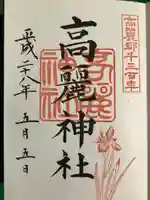 高麗郡千三百年
高麗神社
平成二十八年 五月五日